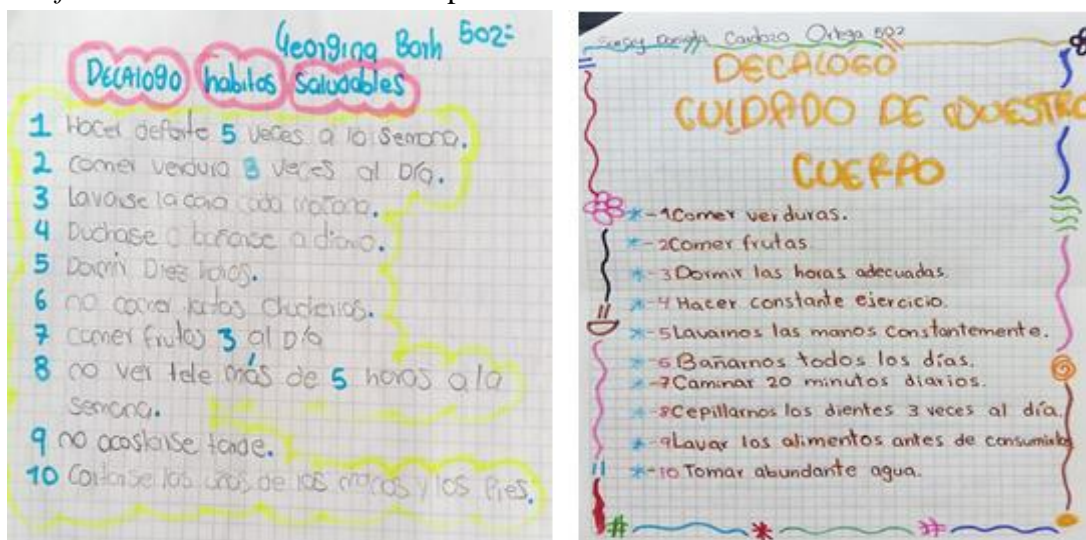 Georgina Barh 502
DECAlOgO habitos Saludables
1 Hacer deporte 5 veces a la Semana.
2 comer verdura 3 veces al Día.
3 Lavarse la cara cada mañana.
4 Duchase o bañarse a diario.
5 Dormir Diez horas.
6 no comer tantas chucherias.
7 comer frutas 3 al Día
8 no ver tele más de 5 horas a la
Semana.
9 no acostarse tarde.
10 Cortarse las uñas de las manos y los Pies.
Cardozo Ortega 502
DECALOGO
CUIDADO DE NUESTRO
CUERPO
*-1Comer verduras.
*-2Comer frutas.
*-3Dormir las horas adecuadas.
*-4Hacer constante ejercicio.
*-5Lavarnos las manos constantemente.
*-6Bañarnos todos los días.
*-7Caminar 20 minutos diarios.
*-8Cepillarnos los dientes 3 veces al día.
*-9Lavar los alimentos antes de consumirlos
*-10Tomar abundante agua.